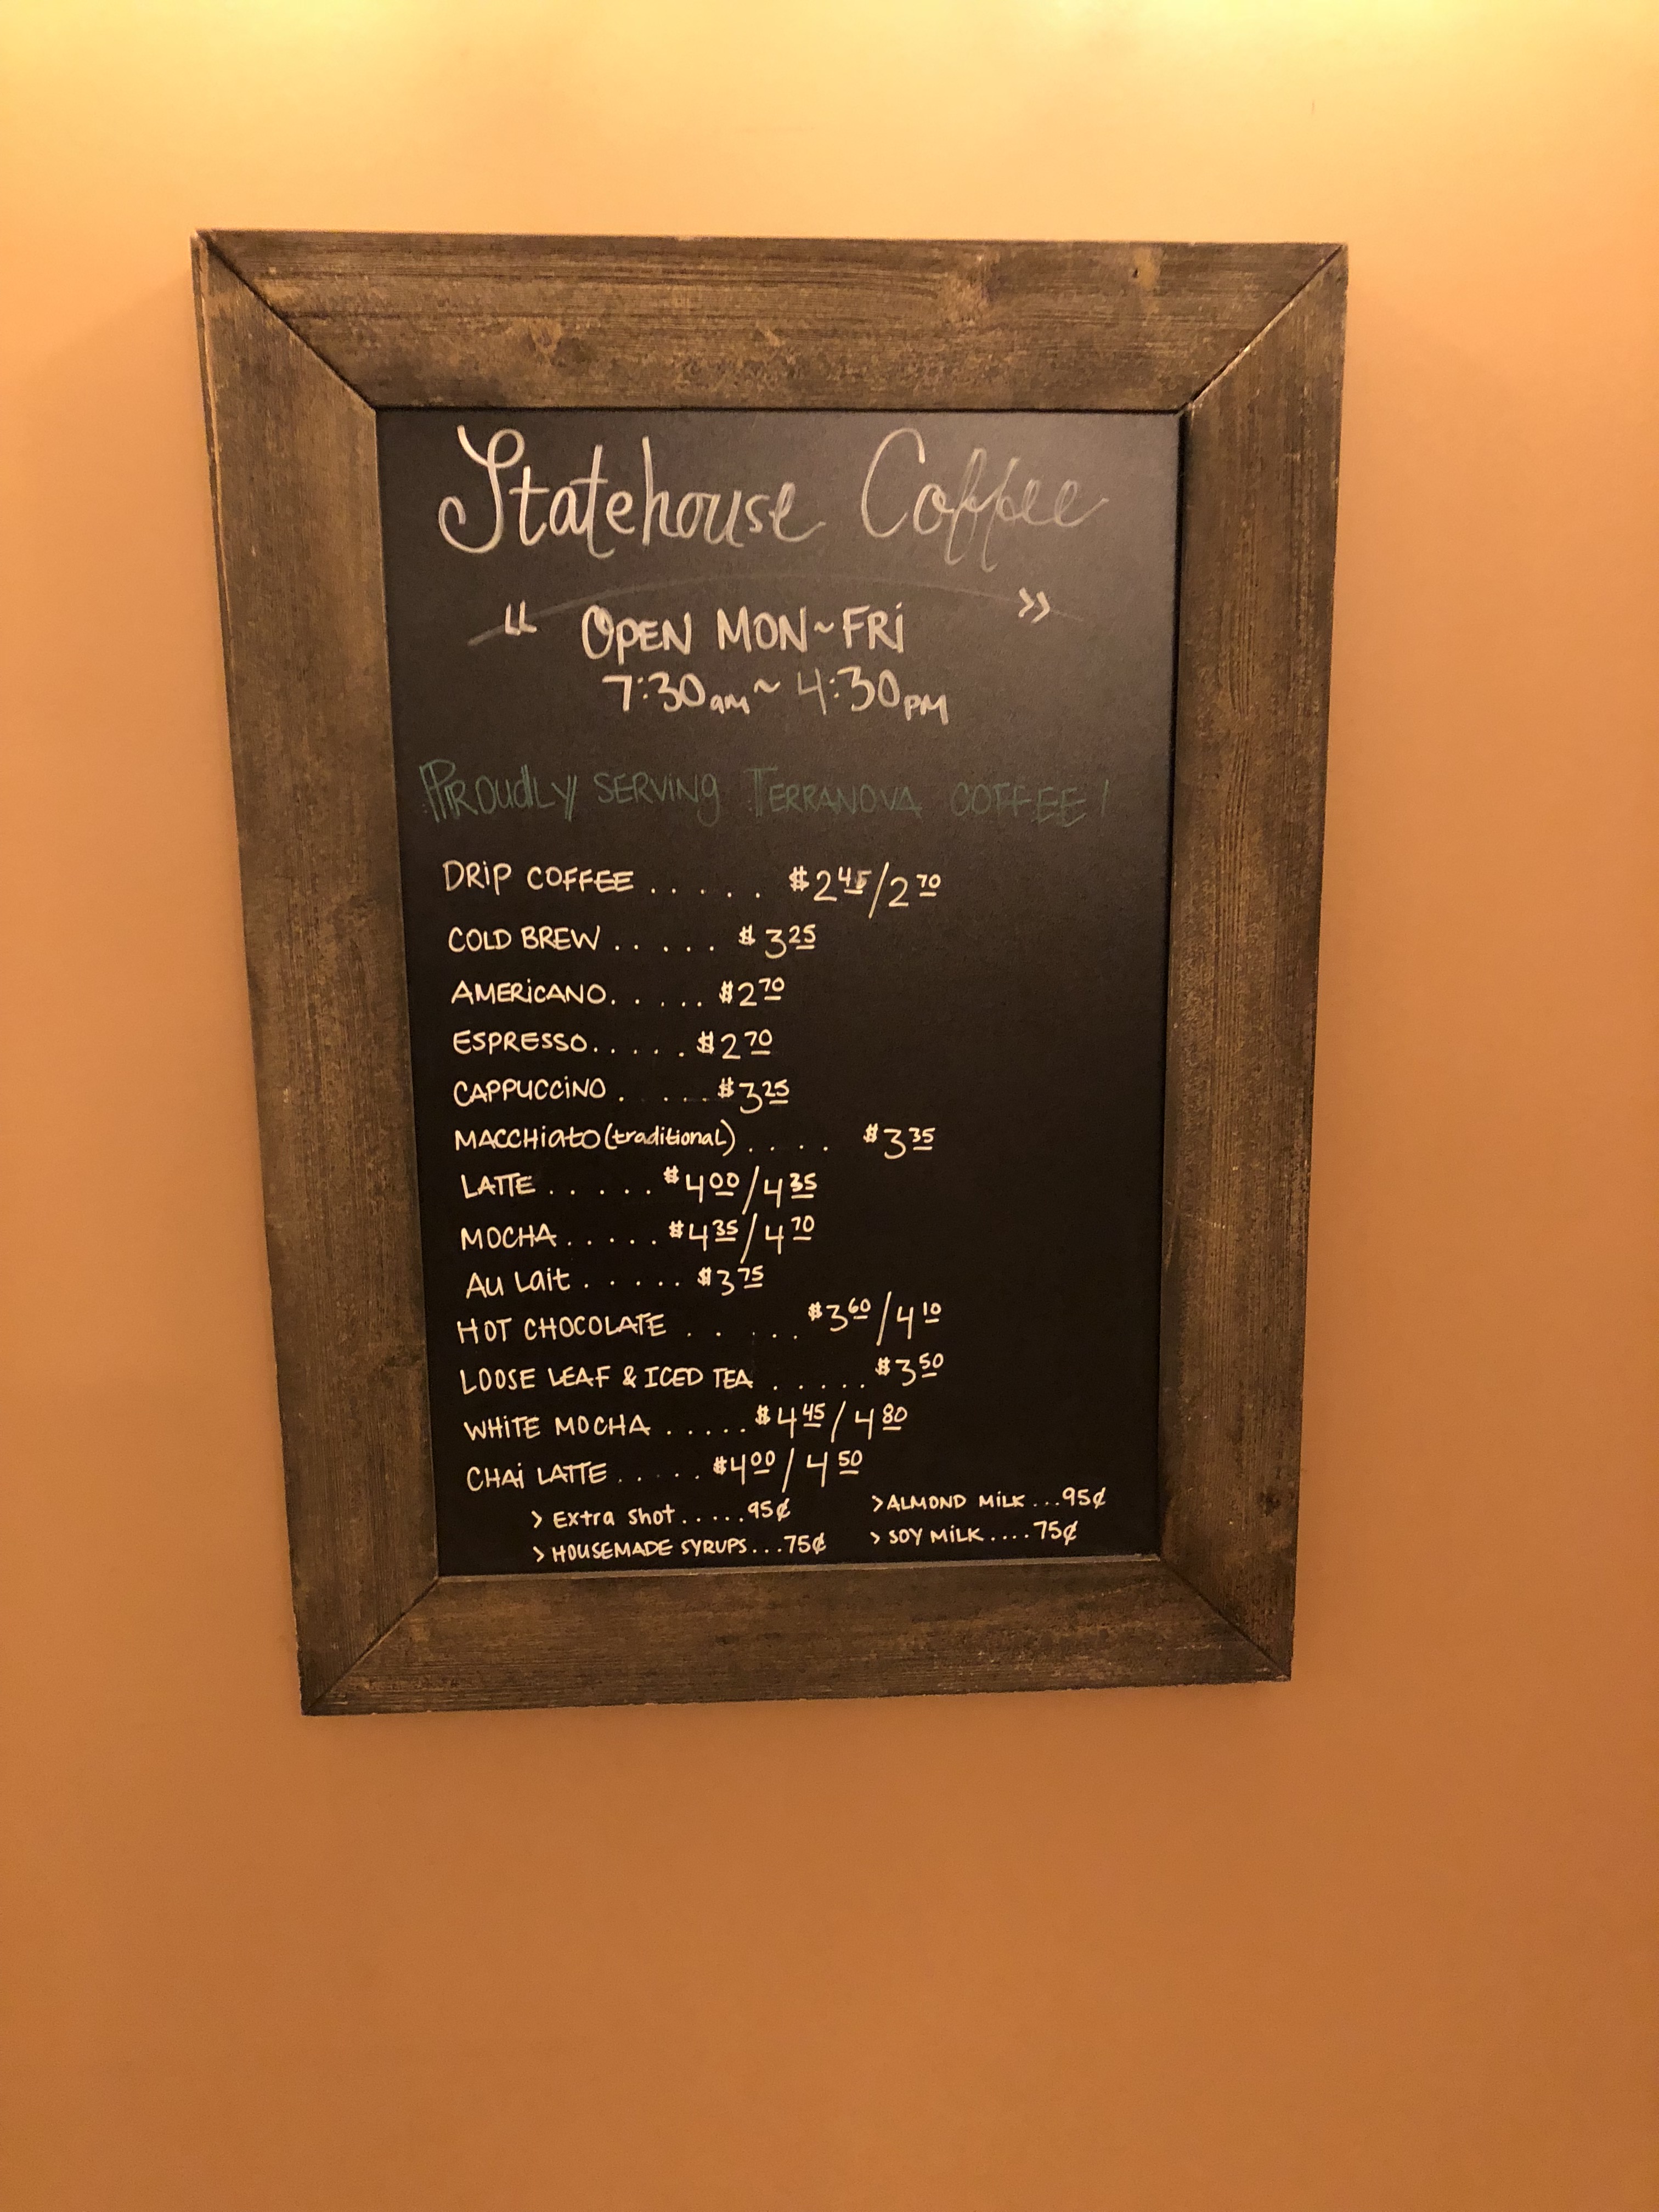 Statehouse Coffee
“ OPEN MON~FRi »
7:30am~ 4:30PM
PROUdLY SERVING TERRANOVA COFFEE!
DRiP COFFEE ..... $2 45/2 70
COLD BREW ..... $3 25
AMERiCANO..... $2 70
ESPRESSO..... $2 70
CAPPUCCiNO ..... $3 25
MACCHiato(traditional) .... $3 35
LATTE ..... $4 00/4 35
MOCHA ..... $4 35/4 70
Au Lait ..... $3 75
HOT CHOCOLATE ..... $3 60/4 10
LOOSE LEAF & ICED TEA ..... $3 50
WHiTE MOCHA ..... $4 45/4 80
CHAi LATTE ..... $4 00/4 50
> Extra Shot .....95¢ >ALMOND MiLK ...95¢
> HOUSEMADE SYRUPS...75¢ > SOY MiLK ....75¢